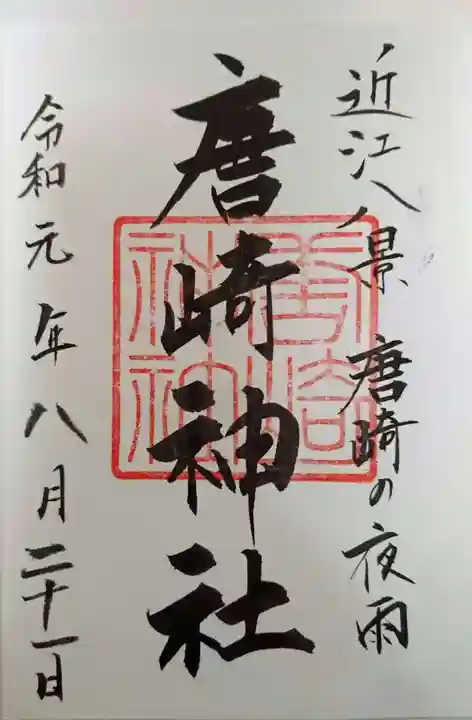 近江八景 唐崎の夜雨
唐崎神社
唐崎
神社
令和元年八月二十一日